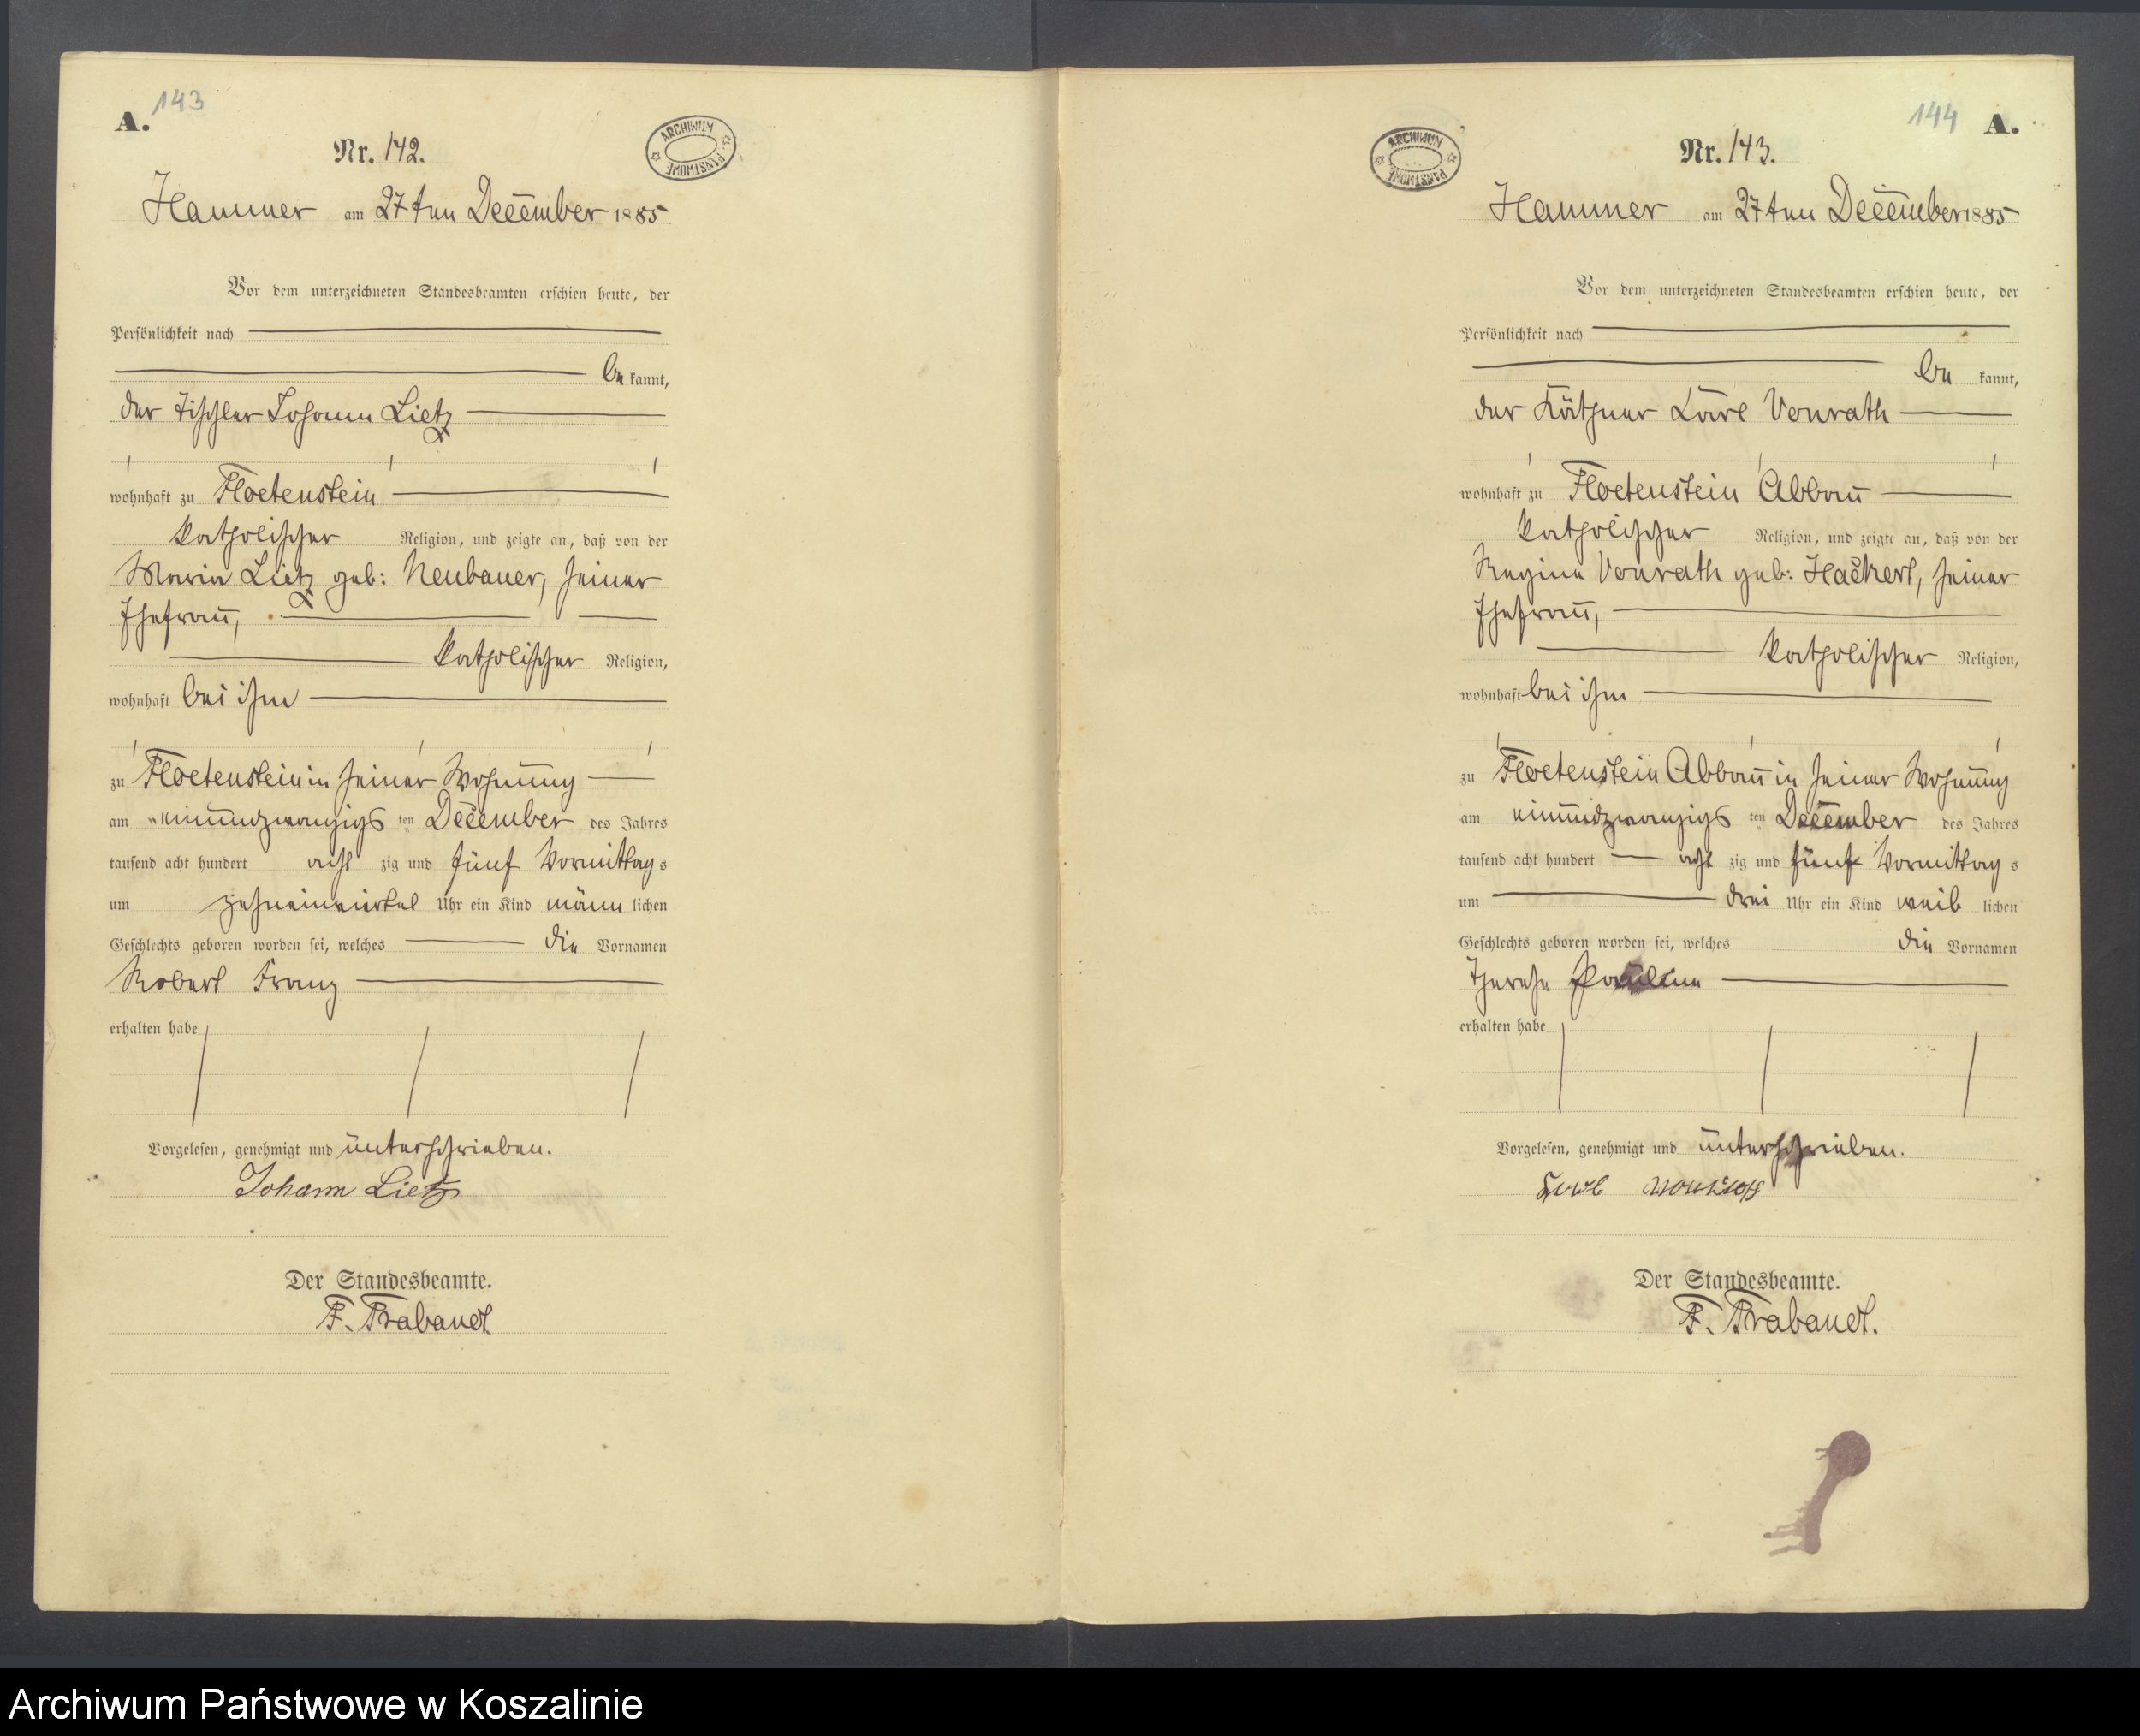 143
A.
Nr. 142.
ARCHIWUM PAŃSTWOWE
Hammer am 27ten December 1885
Vor dem unterzeichneten Standesbeamten erschien heute, der
Persönlichkeit nach
be kannt,
der Tischler Johann Lietz
wohnhaft zu Floetenstein
katholischer Religion, und zeigte an, daß von der
Maria Lietz geb: Neubauer, seiner
Ehefrau,
katholischer Religion,
wohnhaft bei ihm
zu Floetenstein in seiner Wohnung
am einundzwanzigs ten December des Jahres
tausend acht hundert acht zig und fünf Vormittag s
um zehneinviertel Uhr ein Kind männ lichen
Geschlechts geboren worden sei, welches die Vornamen
Robert Franz
erhalten habe
Vorgelesen, genehmigt und unterschrieben.
Johann Lietz
Der Standesbeamte.
F. Trabandt.
144
A.
Nr. 143.
ARCHIWUM PAŃSTWOWE
Hammer am 27ten December 1885
Vor dem unterzeichneten Standesbeamten erschien heute, der
Persönlichkeit nach
be kannt,
der Käthner Carl Vonrath
wohnhaft zu Floetenstein Abbau
katholischer Religion, und zeigte an, daß von der
Regine Vonrath geb: Hackert, seiner
Ehefrau,
katholischer Religion,
wohnhaft bei ihm
zu Floetenstein Abbau in seiner Wohnung
am einundzwanzigs ten December des Jahres
tausend acht hundert acht zig und fünf Vormittag s
um drei Uhr ein Kind weib lichen
Geschlechts geboren worden sei, welches die Vornamen
Therese Pauline
erhalten habe
Vorgelesen, genehmigt und unterschrieben.
Der Standesbeamte.
F. Trabandt.
Archiwum Państwowe w Koszalinie